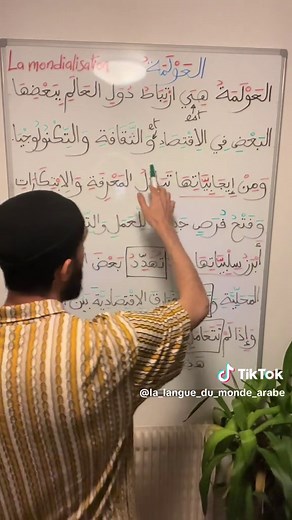 La mondialisation العَوْلَمَةُ
العَوْلَمَةُ هِيَ ارْتِبَاطُ دُوَلِ العَالَمِ بِبَعْضِهَا
est
البَعْضِ فِي الاقْتِصَادِ وَالثَّقَافَةِ وَالتِّكْنُولُوجْيَا.
et
وَمِنْ إِيجَابِيَّاتِهَا المَعْرِفَةِ وَالابْتِكَارَاتِ
وَفَتْحُ فُرَصٍ لِلْعَمَلِ
أَبْرَزُ سَلْبِيَّاتِهَا تُهَدِّدُ بَعْضَ
المَحَلِّيَّةِ الاقْتِصَادِيَّةِ بَيْنَ
وَإِذَا لَمْ نَتَعَامَلْ
TikTok
@la_langue_du_monde_arabe